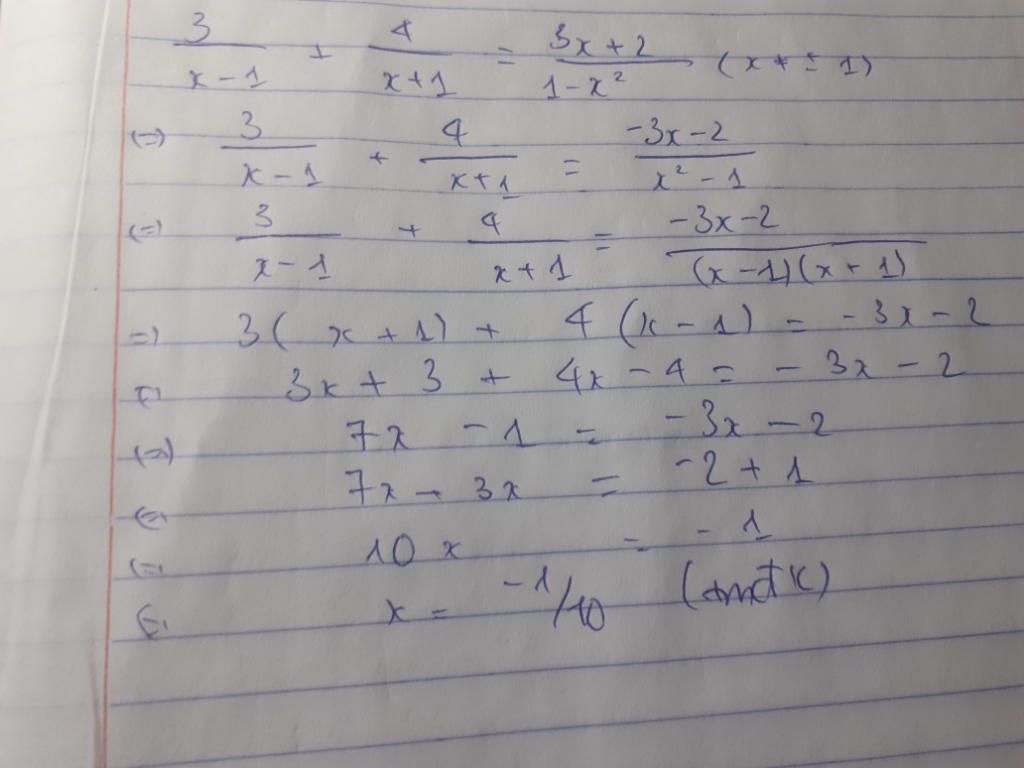 3/(x-1) + 4/(x+1) = (3x+2)/(1-x²) (x ≠ ± 1)
(=) 3/(x-1) + 4/(x+1) = (-3x-2)/(x²-1)
(=) 3/(x-1) + 4/(x+1) = (-3x-2)/((x-1)(x+1))
=) 3(x+1) + 4(x-1) = -3x-2
(=) 3x + 3 + 4x - 4 = - 3x - 2
(=) 7x - 1 = -3x - 2
(=) 7x + 3x = -2 + 1
(=) 10x = - 1
(=) x = -1/10 (tmđk)